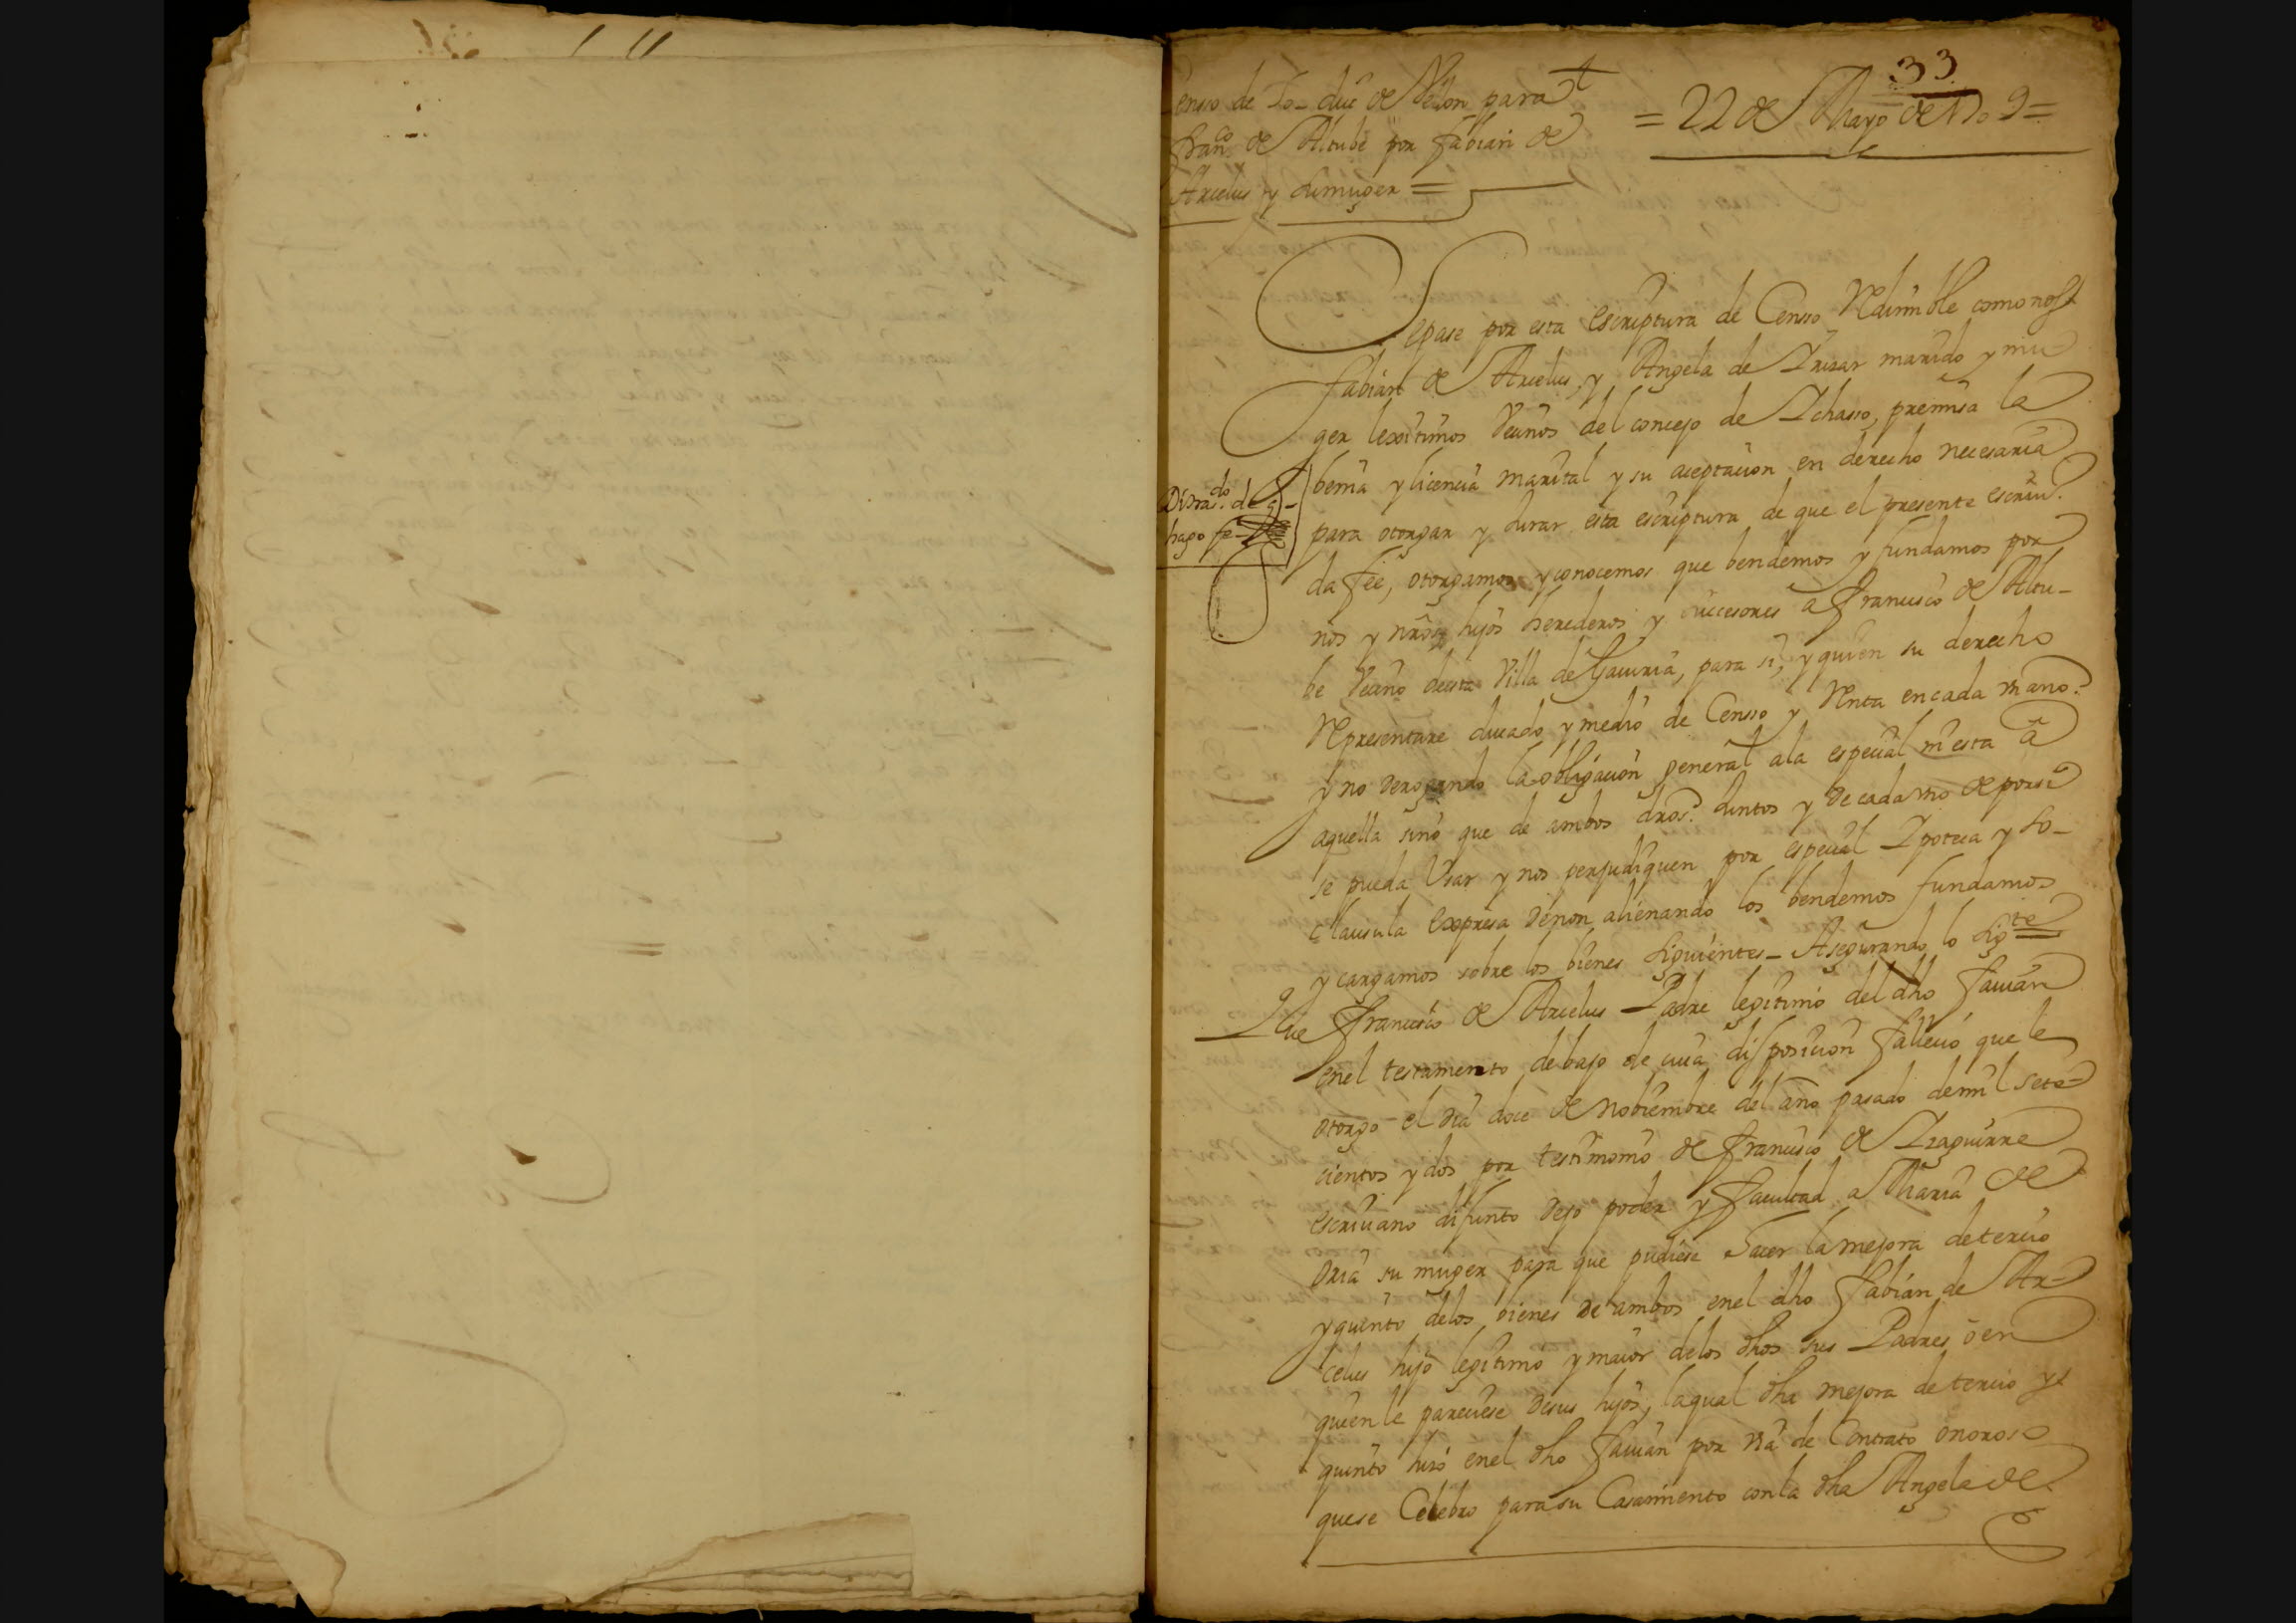 33
Censso de 50 duc̃ de Vellon para
Fran.co de Altube por fabian de
Arcelus y su muger =
= 22 de Mayo de 1709 =
Sepase por esta escriptura de Censso Redimible como nos
fabian de Arcelus, y Angela de Irizar marido y mu-
ger lexitimos Vecinos del concejo de Ichasso, premisa la
benia y licencia marital y su aceptacion en derecho necesaria
para otorgar y Jurar esta escriptura de que el presente escriu.o
da fee, otorgamos y conocemos que bendemos y fundamos por
nos y nr̃os hijos herederos y succesores a Francisco de Altu-
be Vecino desta Villa de Gaviria, para si, y quien su derecho
Representare ducado y medio de Censso y Renta en cada vn año.
y no derogando la obligacion general a la especial ni esta â
aquella sino que de ambos dr̃os. Juntos y de cada vno de por si
se pueda Vsar y nos perjudiquen por especial Ipoteca y so-
clausula expresa de non alienando los bendemos fundamos
y cargamos sobre los bienes siguientes - Asegurando lo sig.te
Que Francisco de Arcelus Padre legitimo del dho favian
en el testamento debajo de cuia disposicion fallecio que le
otorgo el dia doce de Nobiembre del año pasado de mil sete-
cientos y dos por testimonio de Francisco de Izaguirre
escriuano difunto dejo poder y facultad a Maria de
Oria su muger para que pudiese hacer la mejora de tercio
y quinto de los bienes de ambos en el dho fabian de Ar-
celus hijo legitimo y maior de los dhos sus Padres ô en
quien le pareciese de sus hijos, la qual dha mejora de tercio y
quinto hizo en el dho favian por via de Contrato onoroso
que se Celebro para su Casamiento con la dha Angela de
hago fe